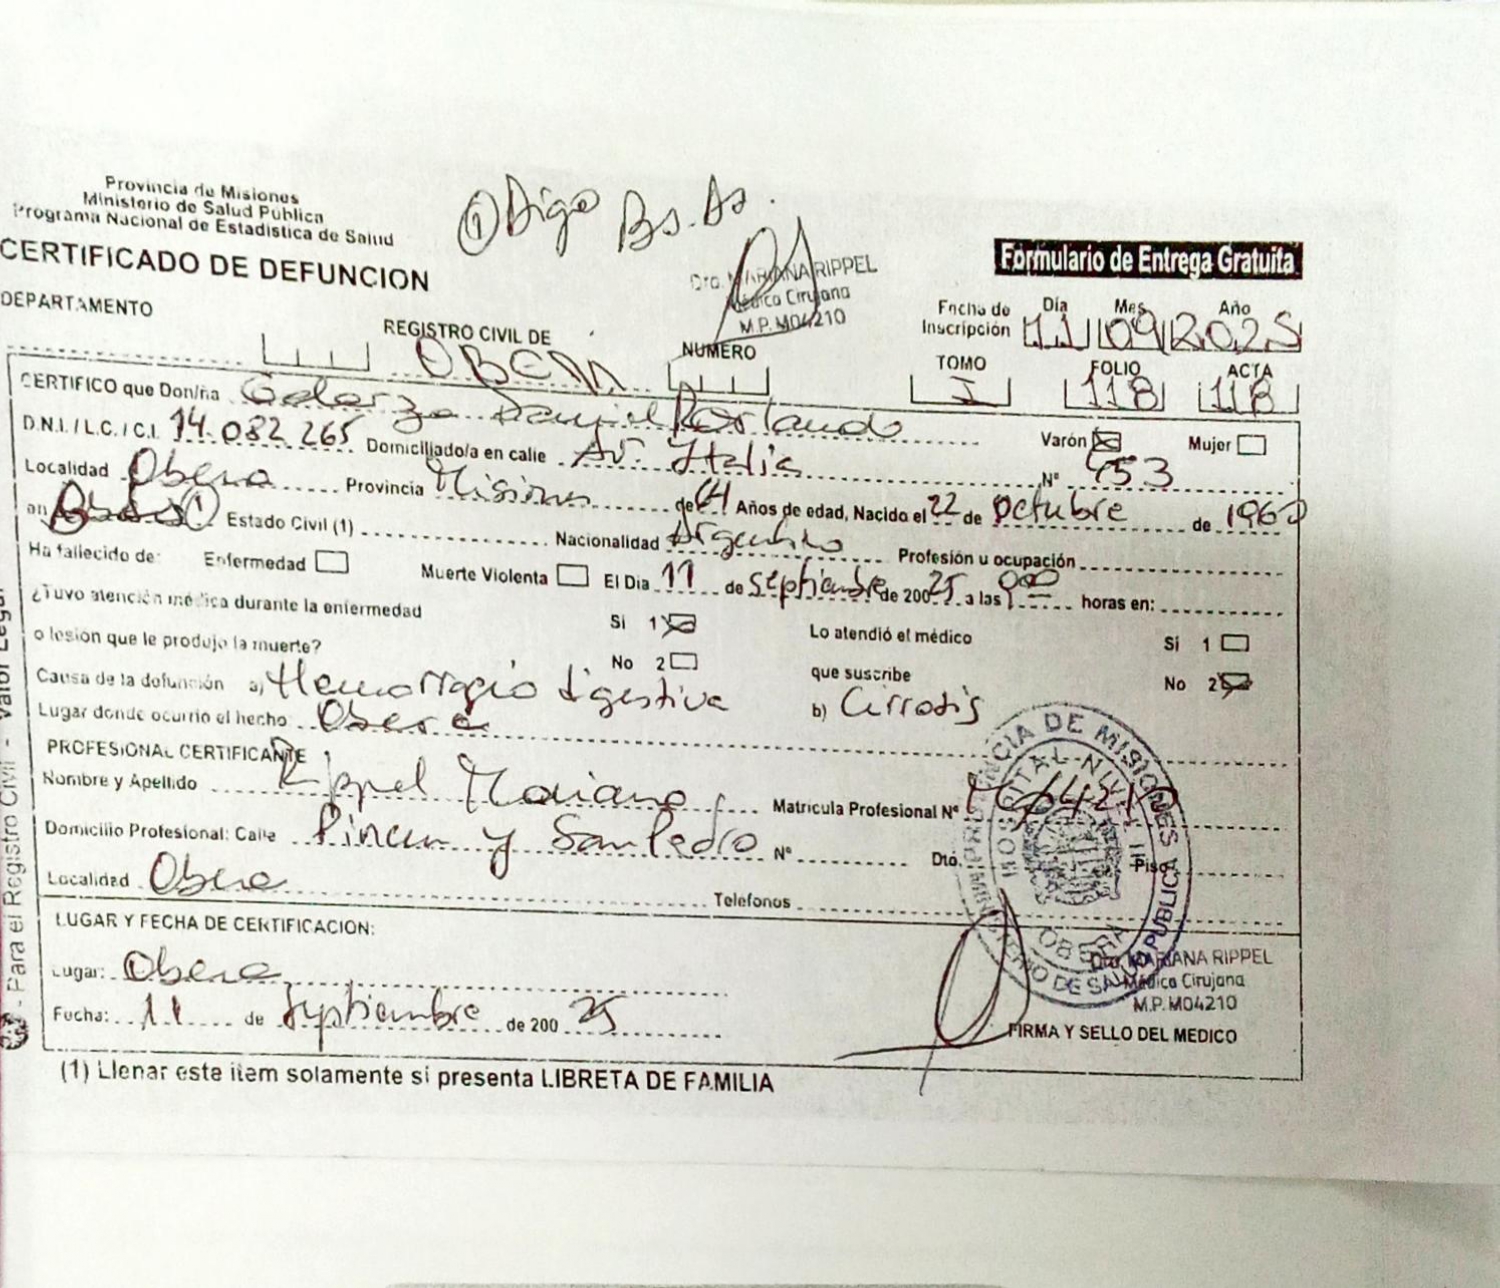 Provincia de Misiones
Ministerio de Salud Pública
Programa Nacional de Estadistica de Salud
① Digo Bs. As.
CERTIFICADO DE DEFUNCION
Formulario de Entrega Gratuita
Dra. MARIANA RIPPEL
Médica Cirujana
M.P. M04210
DEPARTAMENTO
REGISTRO CIVIL DE OBERA
NUMERO
Fecha de Inscripción Día 11 Mes 09 Año 2025
TOMO I FOLIO 118 ACTA 118
CERTIFICO que Don/ña Galarza Daniel Rolando
D.N.I. / L.C. / C.I. 14.082.265 Domiciliado/a en calle Av. Italia Nº 453 Varón Mujer
Localidad Obera Provincia Misiones de 64 Años de edad, Nacido el 22 de Octubre de 1960
en ① Estado Civil (1) Nacionalidad Argentino Profesión u ocupación
Ha fallecido de: Enfermedad Muerte Violenta El Dia 11 de Septiembre de 200 25 a las 9:00 horas en:
¿Tuvo atención médica durante la enfermedad
o lesión que le produjo la muerte?
Si 1
No 2
Lo atendió el médico
que suscribe
Si 1
No 2
Causa de la defunción a) Hemorragia digestiva b) Cirrosis
Lugar donde ocurrio el hecho Obera
PROFESIONAL CERTIFICANTE
Nombre y Apellido Rippel Mariana Matricula Profesional Nº M04210
Domicilio Profesional: Calle y San Pedro Nº Dto. Piso
Localidad Obera Telefonos
LUGAR Y FECHA DE CERTIFICACION:
Lugar: Obera
Fecha: 11 de Septiembre de 200 25
PROVINCIA DE MISIONES
MINISTERIO DE SALUD PUBLICA
HOSPITAL NIVEL III
OBERA
Dra. MARIANA RIPPEL
Médica Cirujana
M.P. M04210
FIRMA Y SELLO DEL MEDICO
(1) Llenar este item solamente si presenta LIBRETA DE FAMILIA
- Para el Registro Civil - Valor Legal